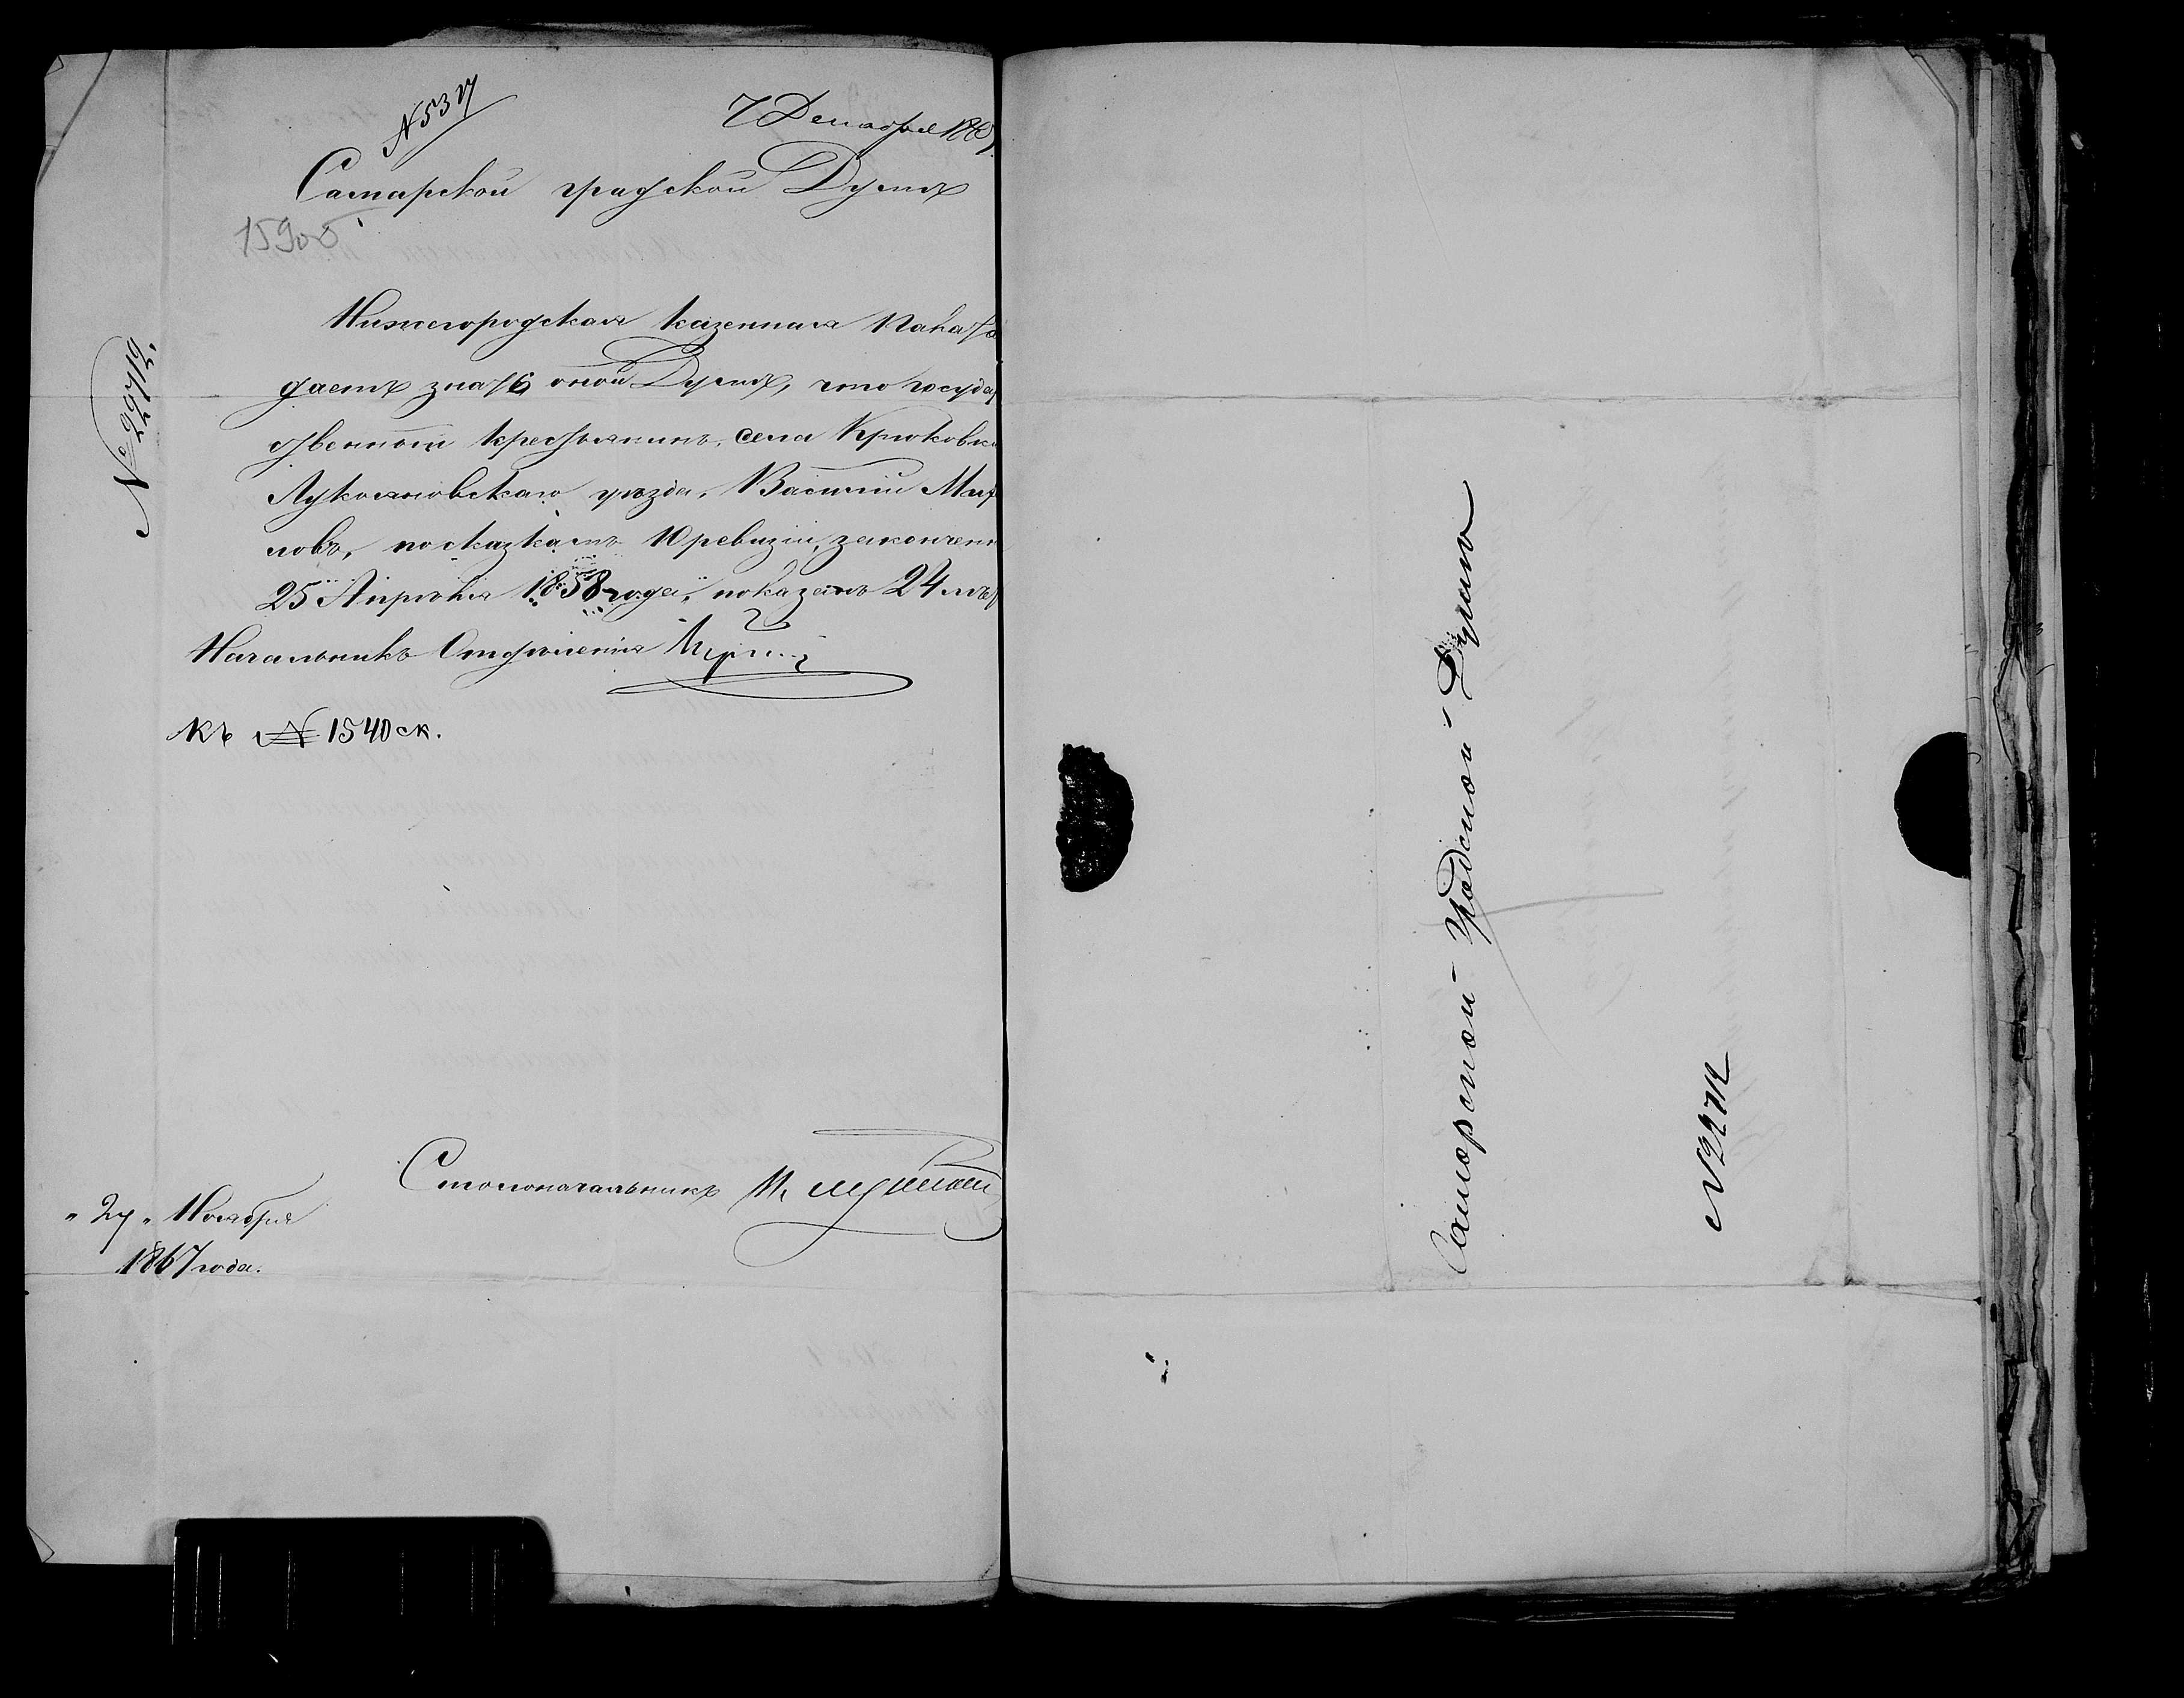 N 5317
7 Декабря 1867.
Самарской градской Думѣ
Нижегородская казенная Палата
даетъ знать оной Думѣ, что государ
ственный крестьянинъ, села Крюковки
Лукояновскаго уѣзда, Василій
ловъ, по сказкамъ 10 ревизіи, законченн
25 Апрѣля 1858 года, показанъ 24 лѣт
Начальникъ Отдѣленія
Къ № 1540 ск.
Столоначальникъ
"27" Ноября
1867 года.
Самарской Градской Думѣ